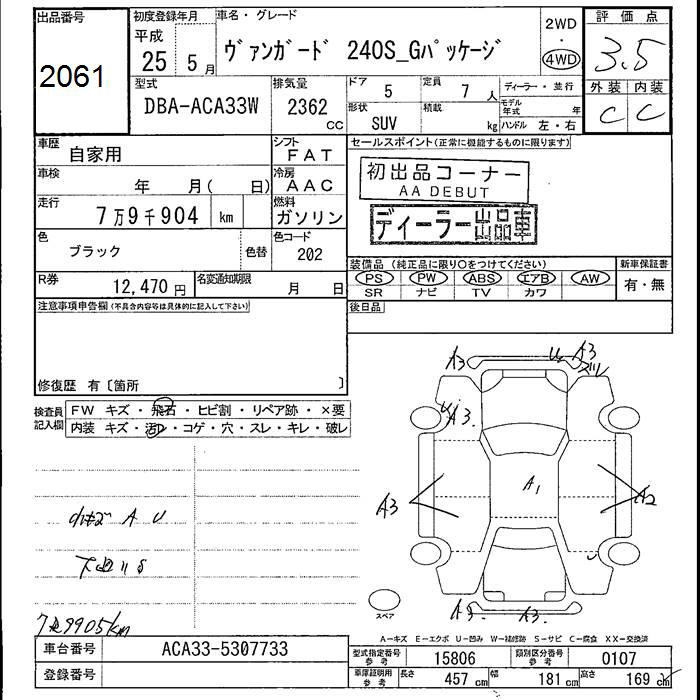 出品番号
2061
初度登録年月
平成
25 5 月
車名・グレード
ヴァンガード 240S_Gパッケージ
2WD
・
4WD
評価点
3.5
外装 内装
C C
型式
DBA-ACA33W
排気量
2362
CC
ドア
5
定員
7 人
形状
SUV
積載
kg
ディーラー・並行
モデル年式 年
ハンドル 左・右
車歴
自家用
シフト
FAT
車検
年 月( 日)
冷房
AAC
走行
7万9千904 km
燃料
ガソリン
色
ブラック
色替
色コード
202
R券
12,470 円
名変通知期限
月 日
セールスポイント(正常に機能するものに限ります)
初出品コーナー
AA DEBUT
ディーラー出品車
装備品 (純正品に限り○をつけてください)
PS PW ABS エアB AW
SR ナビ TV カワ
新車保証書
有・無
後日品
注意事項申告欄(不具合内容等は具体的に記入して下さい)
修復歴 有〔箇所 〕
検査員記入欄
FW キズ・飛石・ヒビ割・リペア跡・×要
内装 キズ・汚レ・コゲ・穴・スレ・キレ・破レ
A U
7万9905km
A3 U A3
ズレ
U
A3.
A3
A1
A2
A3 A3.
スペア
A-キズ E-エクボ U-凹み W-補修跡 S-サビ C-腐食 XX-交換済
車台番号
ACA33-5307733
登録番号
型式指定番号
参考
15806
類別区分番号
参考
0107
車庫証明用
参考
長さ
457 cm
幅
181 cm
高さ
169 cm